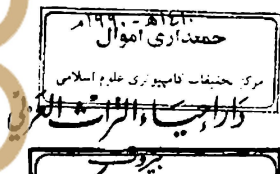 ١٤١٠هـ - ١٩٩٠م
جمعداری اموال
مرکز تحقیقات کامپیوتری علوم اسلامی
دار إحياء التراث العربي
بيروت